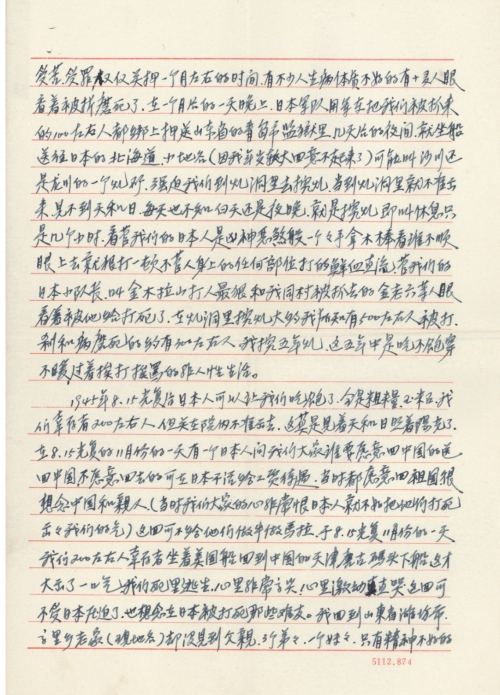 受苦受罪仅仅关押一个月左右的时间,有不少人生病体质不好的有十多人眼
看着被折磨死了,在一个月后的一天晚上,日本军队用军车把我们被抓来
的100左右人都绑上押送山东省的青岛市监狱里,几天后的夜间,就坐船
送往日本的北海道,小地名(因我年岁较大回意不起来了)可能叫沙川还
是龙川的一个矿,强迫我们到矿洞里去挖矿,当到矿洞里就不准出
来,见不到天和日,每天也不知白天还是夜晚,就是挖矿,即叫休息只
是几个小时,看管我们的日本人是凶神恶煞般一个个手拿木棒看谁不顺
眼上去就狠打一顿不管人身上的任何部位打的鲜血直流,管我们的
日本小队长,叫金木拉山打人最狠和我同村被抓去的金老六等人眼
看着被他给打死了,在矿洞里挖矿大约我所知有500左右人被打,
刹和病磨死的约有300左右人,我挖五年矿,这五年中是吃不饱穿
不暖过着挨打挨骂的非人性生活。
1945年8.15光复后日本人可以让我们吃饱了,全是粗粮,2来月,我
们幸存者200左右人,但关在院内不准出去,这算是见着天和日照着陽光了,
在8.15光复的11月份的一天有个日本人问我们大家谁要愿意回中国的送
回中国不愿意回去的可在日本干活给工资待遇,当时都愿意回祖国很
想念中国和親人(当时我们大家的心非常恨日本人就不好把他们打死
出出我们的气)这回可不给他们做牛做马拉,于8.15光复11月份的一天
我们200左右人幸存者坐着美国船回到中国的天津唐古码头下船,这才
大出了一口气,我们死里逃生,心里非常高兴,心里激动直哭这回可
不受日本压迫了,也想念在日本被打死那些难友。我回到山东省潍坊市
宫里乡老家(现地名)却没見到父親,3个弟弟,一个妹妹,只有精神不好的
5112.874